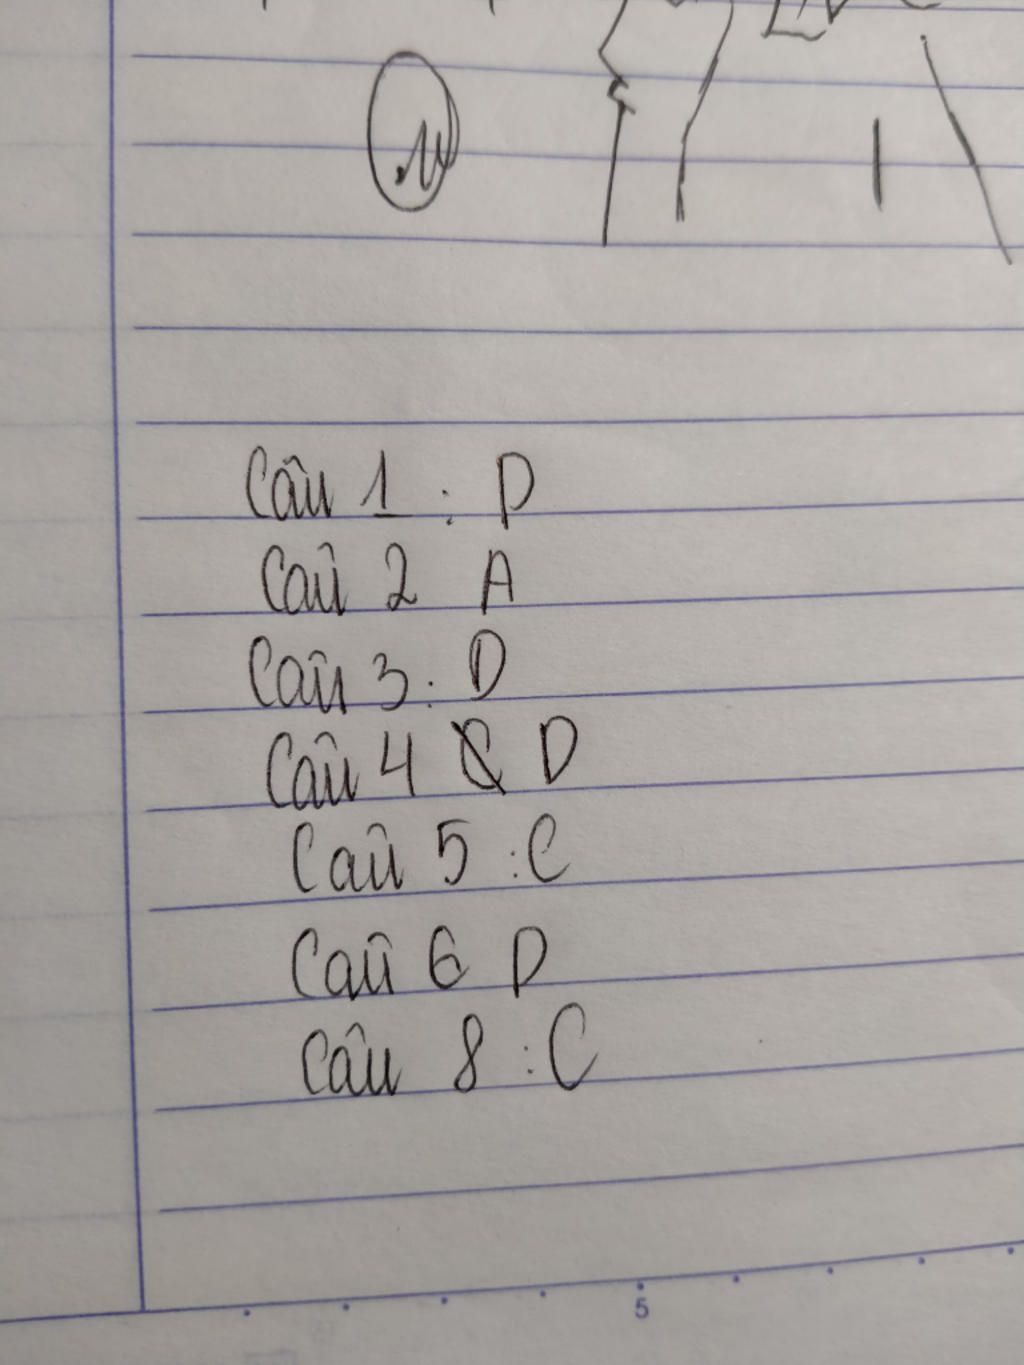 Câu 1 : D
Câu 2 A
Câu 3 : D
Câu 4 D
Câu 5 : C
Câu 6 D
Câu 8 : C
5